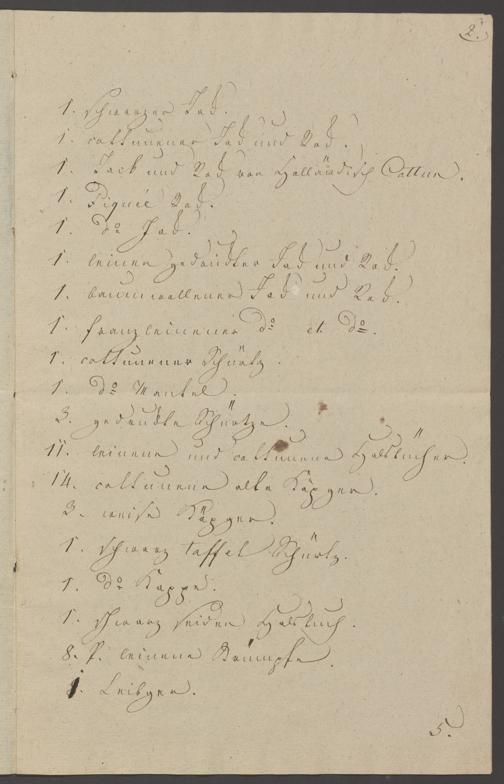 2.
1. schwarzer Jack.
1. cottunener Jack und Rock.
1. Jack und Rock von Holländisch Cottun.
1. Piquée Rock.
1. do Jack.
1. leinen gedruckter Jack und Rock.
1. baumwollener Jack und Rock.
1. franzleinener do et do.
1. cottunener Schürtz.
1. do Mantel.
3. gedruckte Schürtze.
11. leinene und cottunene Halstücher.
14. cottunene alte Käpger.
3. weise Käpger.
1. schwarz taffet Schürtz.
1. do Kappe.
1. schwarz seiden Halstuch.
8. P. leinene Strümpfe.
1. Leibger.
5.